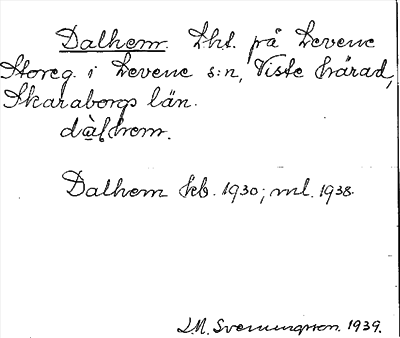 Dalhem. Lht. på Levene
Storeg. i Levene s:n, Viste härad,
Skaraborgs län.
dàlhem.
Dalhem kb. 1930; ml. 1938.
L.M. Svenungsson. 1939.